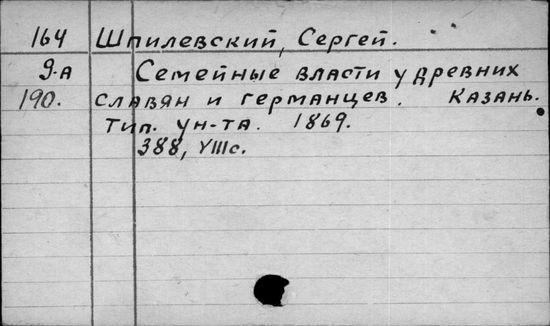 164 Шпилевский, Сергей.
9-А Семейные власти у древних
190. славян и германцев. Казань.
Тип. ун-та. 1869.
388, VIIIс.